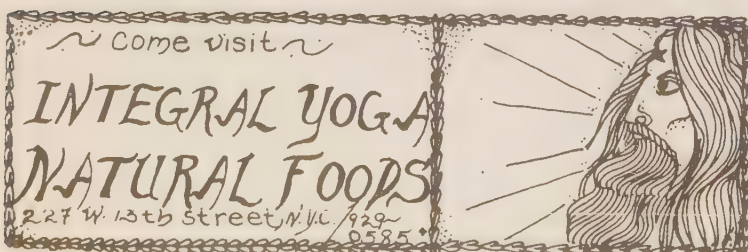 Come visit
INTEGRAL YOGA
NATURAL FOODS
227 W. 13th street, N.Y.C. /929~
0585